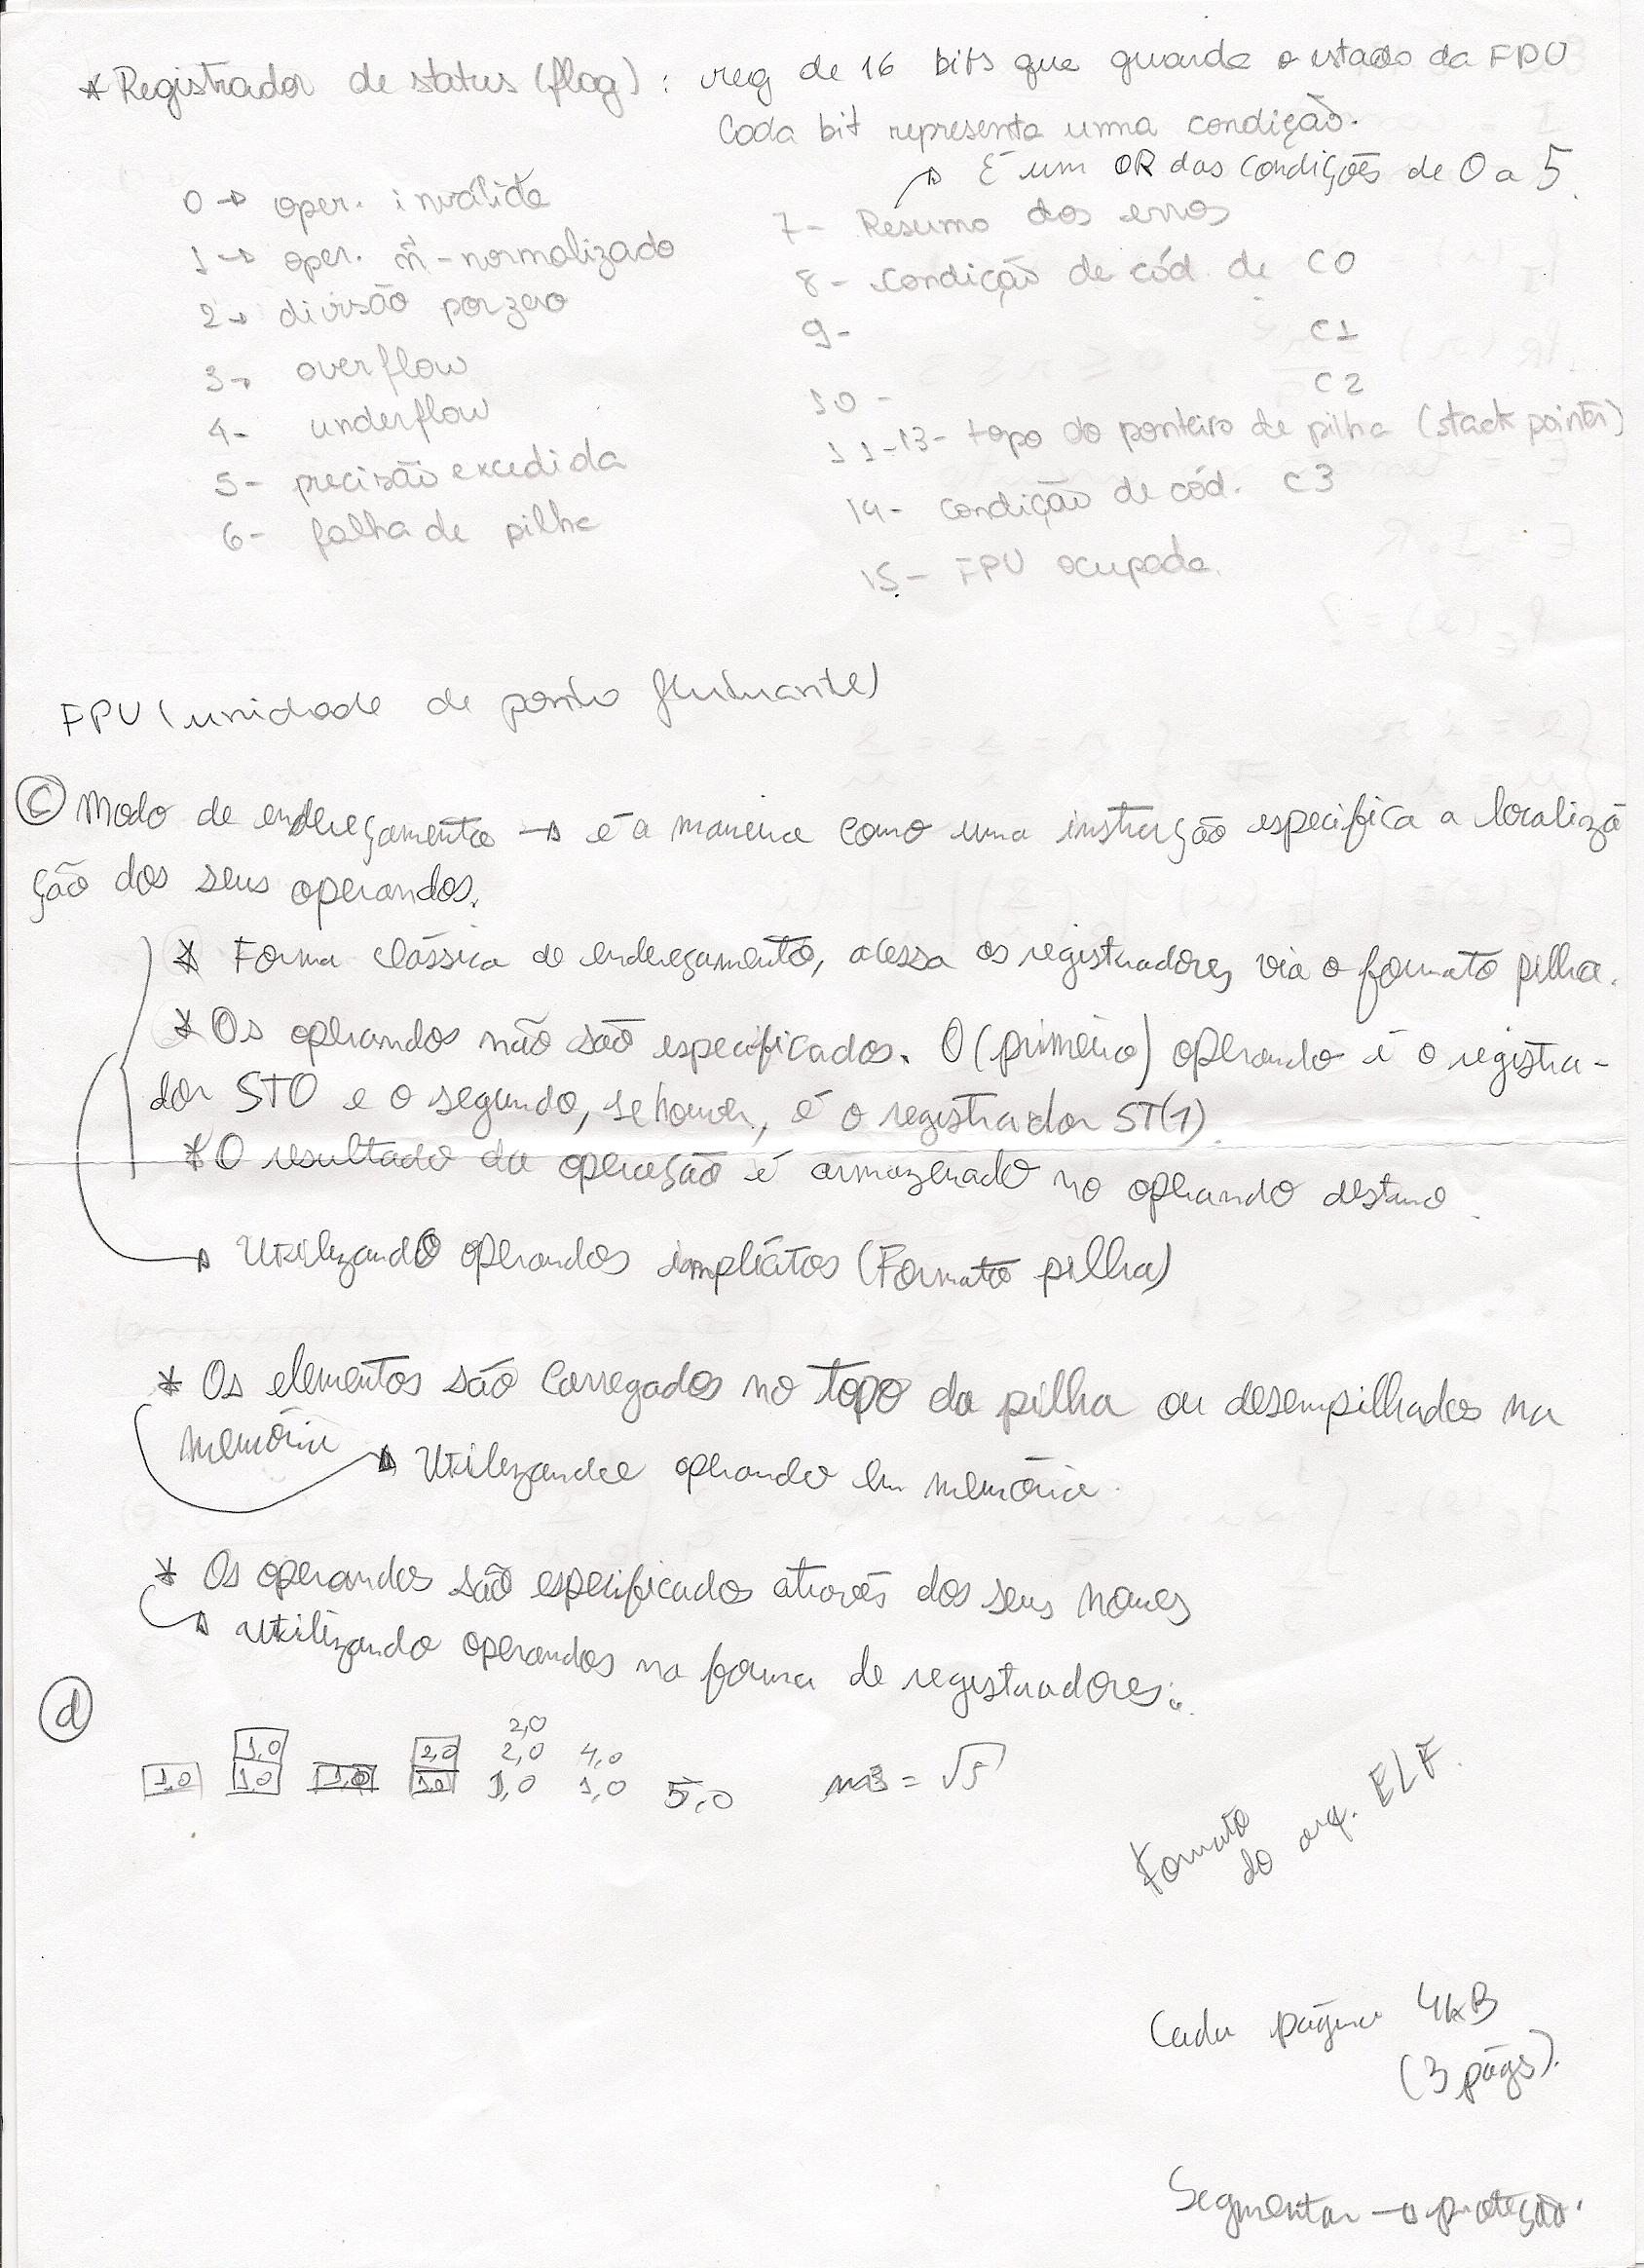 * Registrador de status (flag) : reg de 16 bits que guarda o estado da FPU
Cada bit representa uma condição.
É um OR das condições de 0 a 5.
0 → oper. inválida
1 → oper. ñ-normalizado
2 → divisão por zero
3 → overflow
4 - underflow
5 - precisão excedida
6 - falha de pilha
7 - Resumo dos erros
8 - condição de cód. de C0
9 - C1
10 - C2
11-13 - topo do ponteiro de pilha (stack pointer)
14 - condição de cód. C3
15 - FPU ocupada.
FPU (unidade de ponto flutuante)
(c) Modo de endereçamento → é a maneira como uma instrução especifica a localiza
ção dos seus operandos.
* Forma clássica de endereçamento, acessa os registradores via o formato pilha.
* Os operandos não são especificados. O (primeiro) operando é o registra-
dor ST0 e o segundo, se houver, é o registrador ST(1).
* O resultado da operação é armazenado no operando destino.
→ Utilizando operandos implícitos (Formato pilha)
* Os elementos são carregados no topo da pilha ou desempilhados na
memória
→ Utilizando operando em memória.
* Os operandos são especificados através dos seus nomes
→ utilizando operandos na forma de registradores.
(d)
2,0
1,0 2,0 2,0 4,0
1,0 1,0 1,0 1,0 1,0 1,0 5,0 = √5
Formato
do arq. ELF.
Cada página 4kB
(3 págs).
Segmentar → proteção.